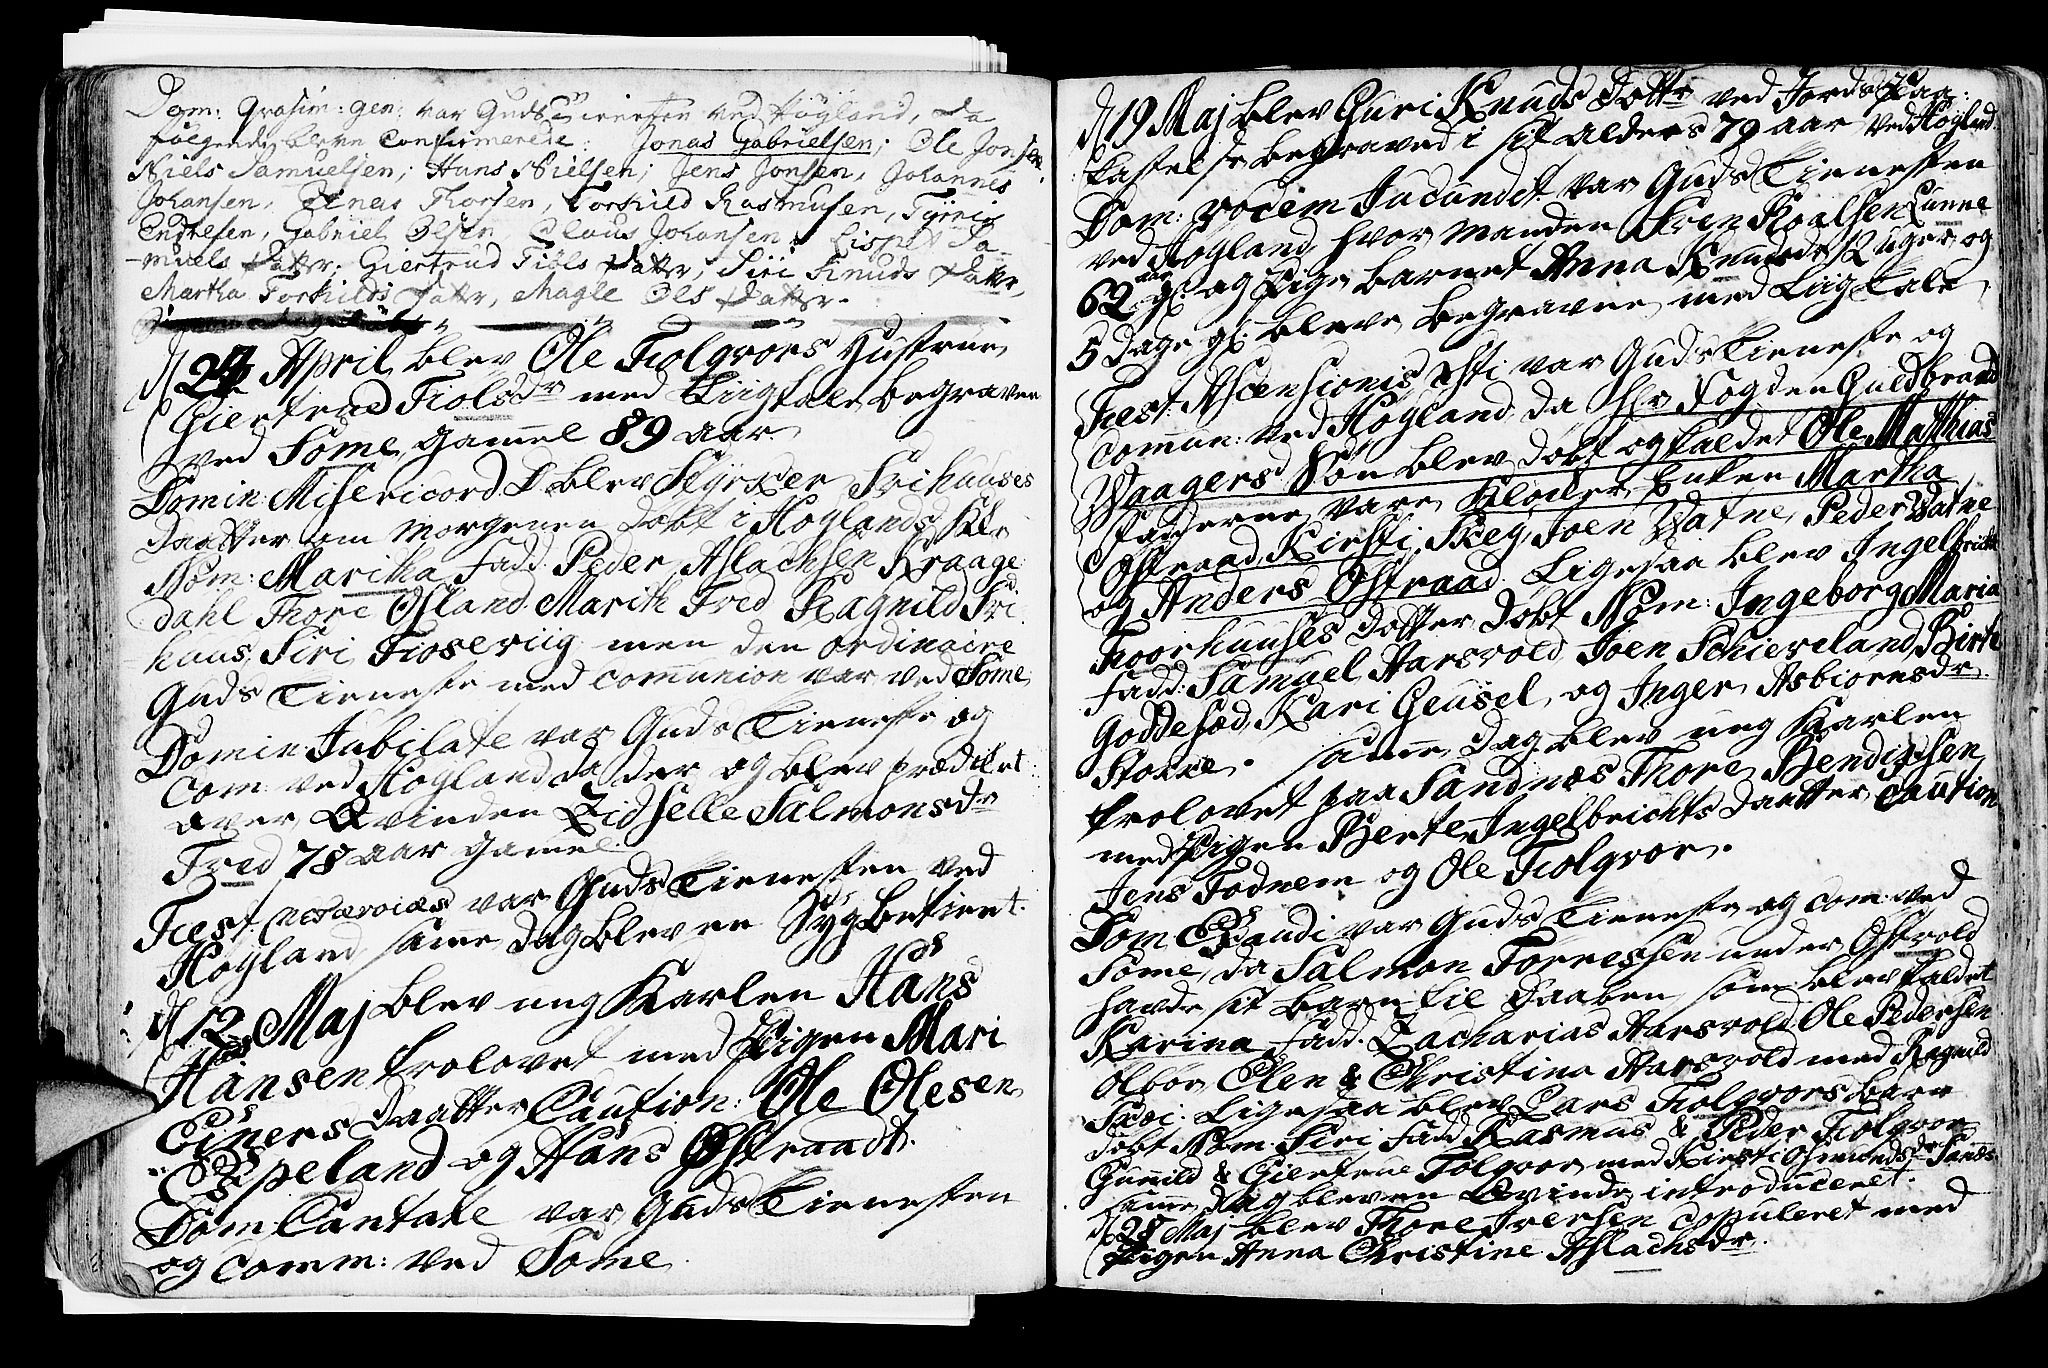 Dom: Qvasim: gen: var Guds Tienesten ved Høgland, da
følgende bleve Confirmerede: Jonas Gabrielsen; Ole Jonsen
Niels Samuelsen; Hans Nielsen; Jens Jonsen, Johannes
Johansen, Thorsen, Torkild Rasmusen, Tørris
Endresen, Gabriel Olsen, Claus Johansen; Lispet Sa
-muels Dattr; Giertrud Tiøls Dattr, Siri Knuds Dattr,
Martha Torkilds Dattr, Magle Ols Dattr.
d 24 April blev Ole Fiolgvors Hustrue
Giertrud Tiolsdr med Liigtale begraven
ved Some gamel 89 aar.
Domin: Misericord. D blev Styrker Srihuuses
Daatter om morgenen dobt i Hoylands Kk
Nom: Maritha fadd: Peder Aslachsen Kraage
dahl Thore Osland Marith Fred Ragnild Sri
huus, Siri Fioseviig men den ordinaire
Guds Tieneste med Communion var ved Some
Domin: Jubilate var Guds Tieneste og
Com: ved Høyland da der og blev prædiket
over Qvinden Zidselle Salmonsdr
Fred 78 aar gamel.
Fest var Guds Tienesten ved
Hoyland samme dag blev en Sygbetient.
d 12 Maj blev ung Karlen Hans
Hansen trolovet med Pigen Mari
Einers Daatter Caution: Ole Olesen
Espeland og Hans Østraadt.
Dom: Cantate var Guds Tienesten
og Comm: ved Some.
d 19 Maj blev Guri Knuds Dottr ved Jords Paa-
kastelse begraved i sit alders 79 aar ved Høgland.
Dom: vocem Jucundit var Guds Tienesten
ved Høgland, hvor manden Sven Roalsen Lunne
62 aar gl og Pige barnet Anna Knudsdr 12 uger og
5 dage gl bleve begravne med Liigtale
Fest: Ascensionis Xsti var Guds Tieneste og
Common: ved Høgland, da Hr Fogden Guldbrand
Waagers Søn blev døbt og kaldet Ole Matthias
Fadderne vare Klocker Enken Martha
Østraad Kirsti Skey Joen Watne, Peder Watne
og Anders Østraad. Ligesaa blev Ingelbricht
Foorhuuses Datter dobt Nom: Ingeborg Maria
fadd: Samuel Harsvold Joen Schieveland Birte
Goddesæd Kari Geusel og Inger Asbiørnsdr
Stokke. Samme dag blev ung Karlen
trolovet paa Sandnæs Thore Bendixsen
med Pigen Berte Ingelbrichts Daatter Caution
Jens Fodnem og Ole Fiolgvor.
Dom Exaudi var Guds Tieneste og com: ved
Some, da Salmon Torressen under Ostvold
havde sit barn til Daaben som blev kaldet
Karina fadd. Zacharias Harsvold Ole Pedersen
Olbor Elen & Christina Harsvold med Ragnild
Skei. Ligesaa blev Lars Fiolgvors barn
dobt Nom. Siri fadd Rasmus & Peder Fiolgvor
Gunnild & Giertrue Folgvor med Kirsti Osmundsdr Sannes
samme dag blev en Qvinde introduceret.
d 28 Maj blev Thore Iversen copuleret med
Pigen Anna Christine Aslachsdr.